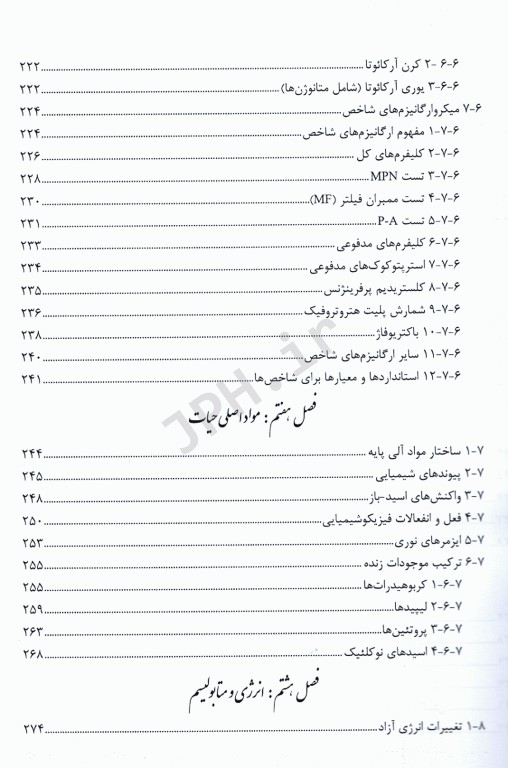 ۶-۶-۲ کرن آرکائوتا ۲۲۲
۶-۶-۳ یوری آرکائوتا (شامل متانوژن‌ها) ۲۲۲
۶-۷ میکروارگانیزم‌های شاخص ۲۲۴
۶-۷-۱ مفهوم ارگانیزم‌های شاخص ۲۲۴
۶-۷-۲ کلیفرم‌های کل ۲۲۶
۶-۷-۳ تست MPN ۲۲۸
۶-۷-۴ تست ممبران فیلتر (MF) ۲۳۰
۶-۷-۵ تست P-A ۲۳۱
۶-۷-۶ کلیفرم‌های مدفوعی ۲۳۳
۶-۷-۷ استرپتوکوک‌های مدفوعی ۲۳۴
۶-۷-۸ کلستریدیم پرفرینژنس ۲۳۵
۶-۷-۹ شمارش پلیت هتروتروفیک ۲۳۶
۶-۷-۱۰ باکتریوفاژ ۲۳۸
۶-۷-۱۱ سایر ارگانیزم‌های شاخص ۲۴۰
۶-۷-۱۲ استانداردها و معیارها برای شاخص‌ها ۲۴۱
JPH.ir
فصل هفتم: مواد اصلی حیات
۷-۱ ساختار مواد آلی پایه ۲۴۴
۷-۲ پیوندهای شیمیایی ۲۴۵
۷-۳ واکنش‌های اسید-باز ۲۴۸
۷-۴ فعل و انفعالات فیزیکوشیمیایی ۲۵۰
۷-۵ ایزمرهای نوری ۲۵۳
۷-۶ ترکیب موجودات زنده ۲۵۵
۷-۶-۱ کربوهیدرات‌ها ۲۵۵
۷-۶-۲ لیپیدها ۲۵۹
۷-۶-۳ پروتئین‌ها ۲۶۳
۷-۶-۴ اسیدهای نوکلئیک ۲۶۸
فصل هشتم: انرژی و متابولیسم
۸-۱ تغییرات انرژی آزاد ۲۷۴